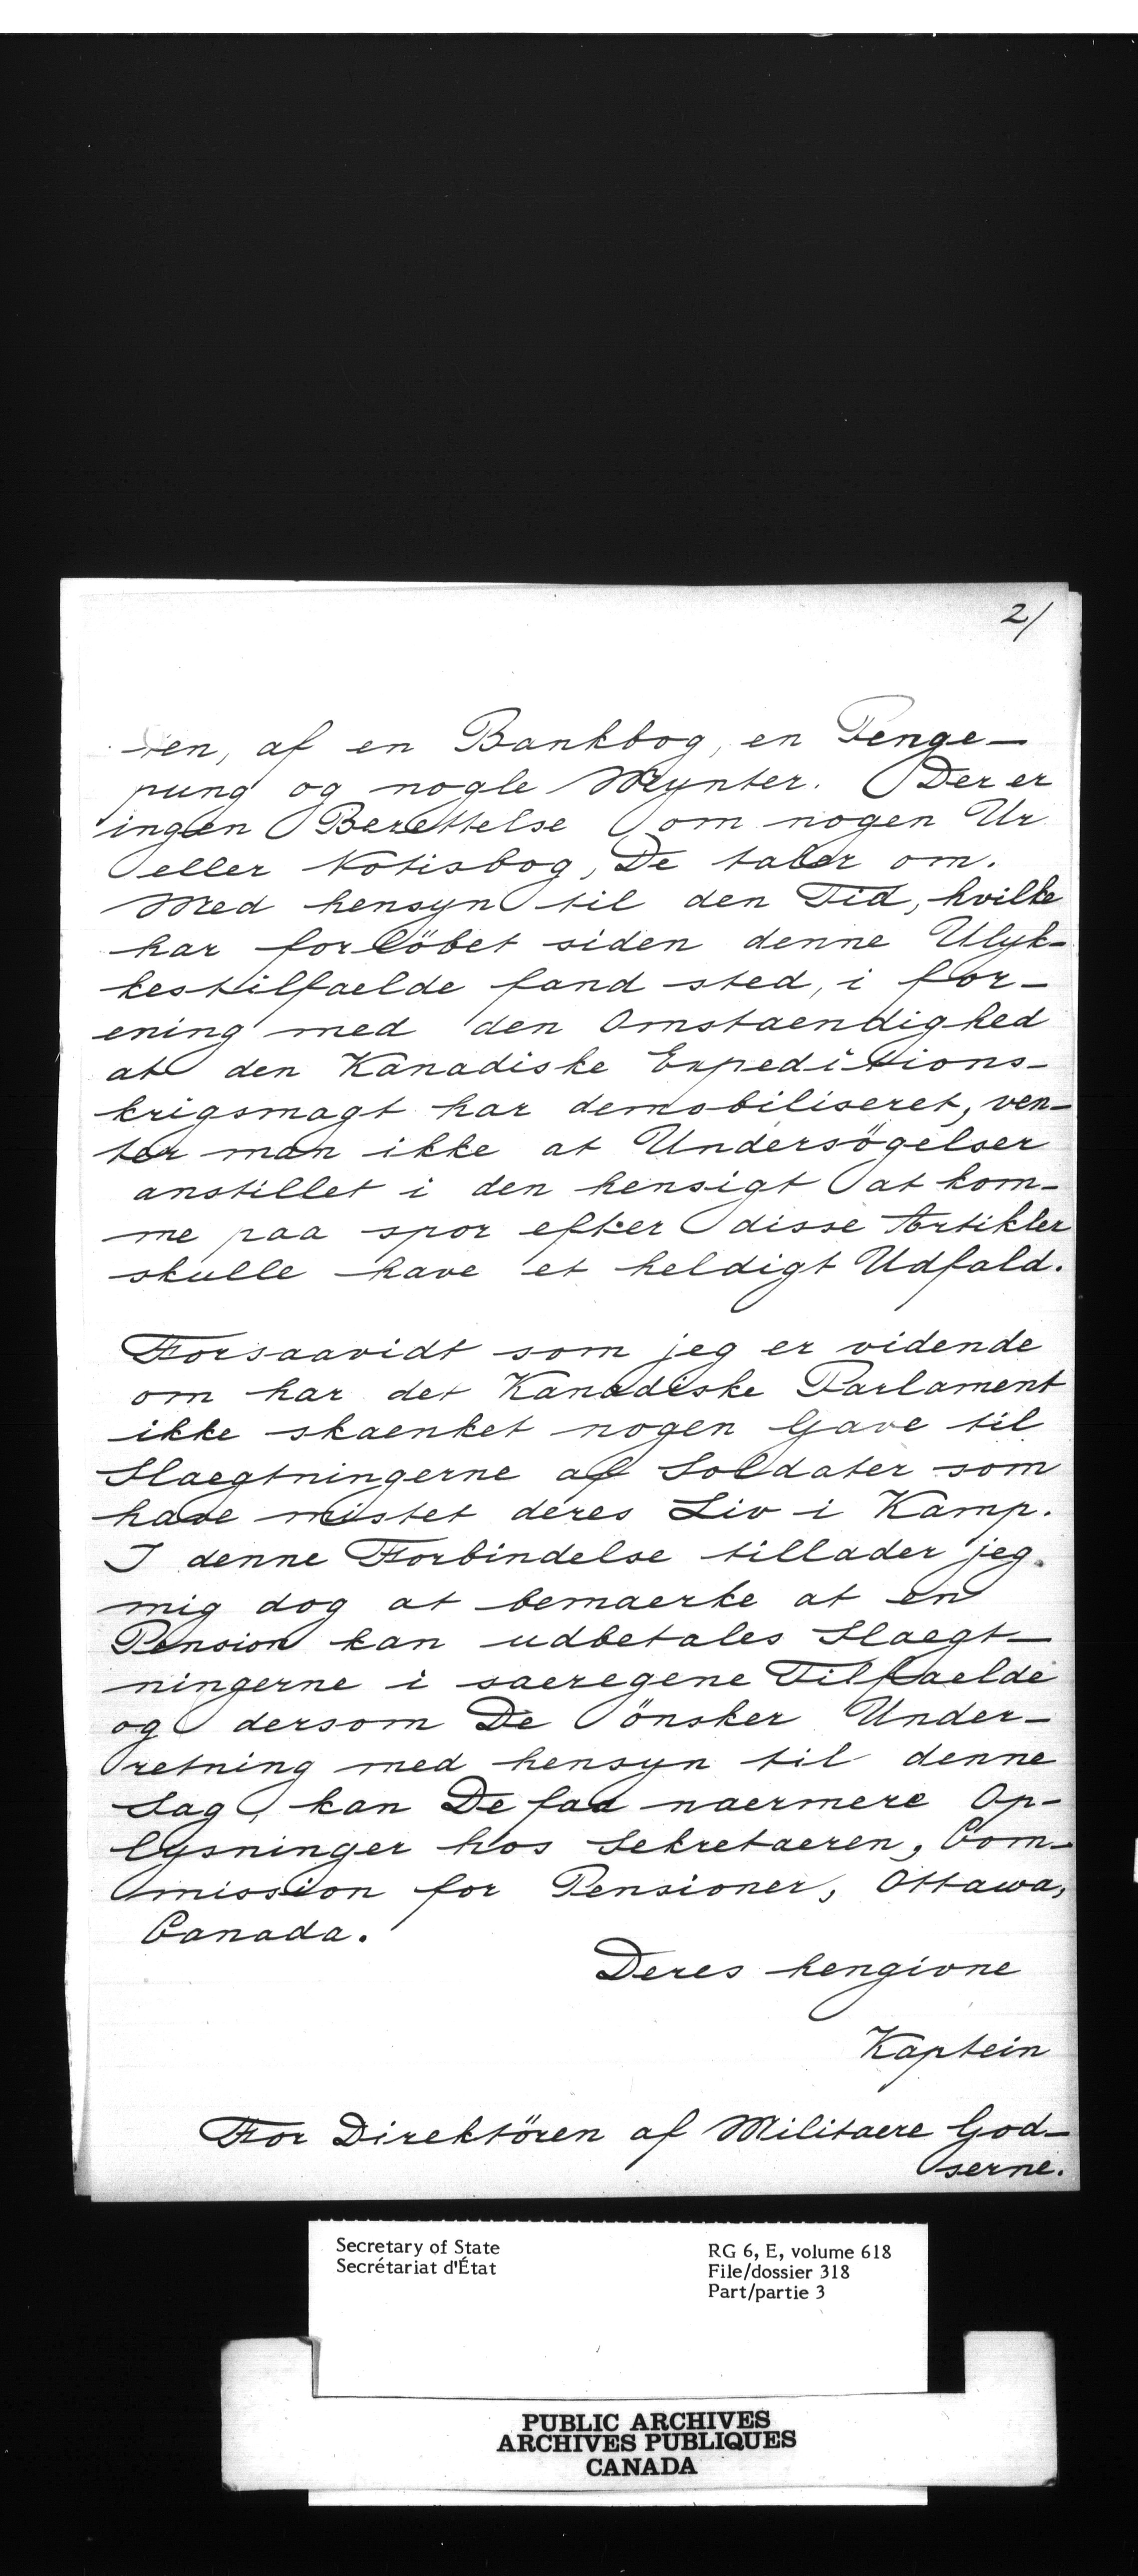 2/
-ren, af en Bankbog, en Penge-
pung og nogle Mynter. Der er
ingen Berettelse om nogen Ur
eller Notisbog, De taler om.
Med hensyn til den Tid, hvilke
har forlöbet siden denne Ulyk-
kestilfaelde fand sted, i for-
ening med den Omstaendighed
at den Kanadiske Expeditions-
krigsmagt har demobiliseret, ven-
ter man ikke at Undersögelser
anstillet i den hensigt at kom-
me paa spor efter disse Artikler
skulle have et heldigt Udfald.
Forsaavidt som jeg er vidende
om har det Kanadiske Parlament
ikke skaenket nogen Gave til
Slaegtningerne af Soldater som
have mistet deres Liv i Kamp.
I denne Forbindelse tillader jeg
mig dog at bemaerke at en
Pension kan udbetales Slaegt-
ningerne i saeregene Tilfaelde
og dersom De önsker Under-
retning med hensyn til denne
Sag, kan De faa naermere Op-
lysninger hos Sekretaeren, Com-
mission for Pensioner, Ottawa,
Canada.
Deres hengivne
Kaptein
For Direktören af Militaere God-
serne.
Secretary of State
Secrétariat d'État
RG 6, E, volume 618
File/dossier 318
Part/partie 3
PUBLIC ARCHIVES
ARCHIVES PUBLIQUES
CANADA